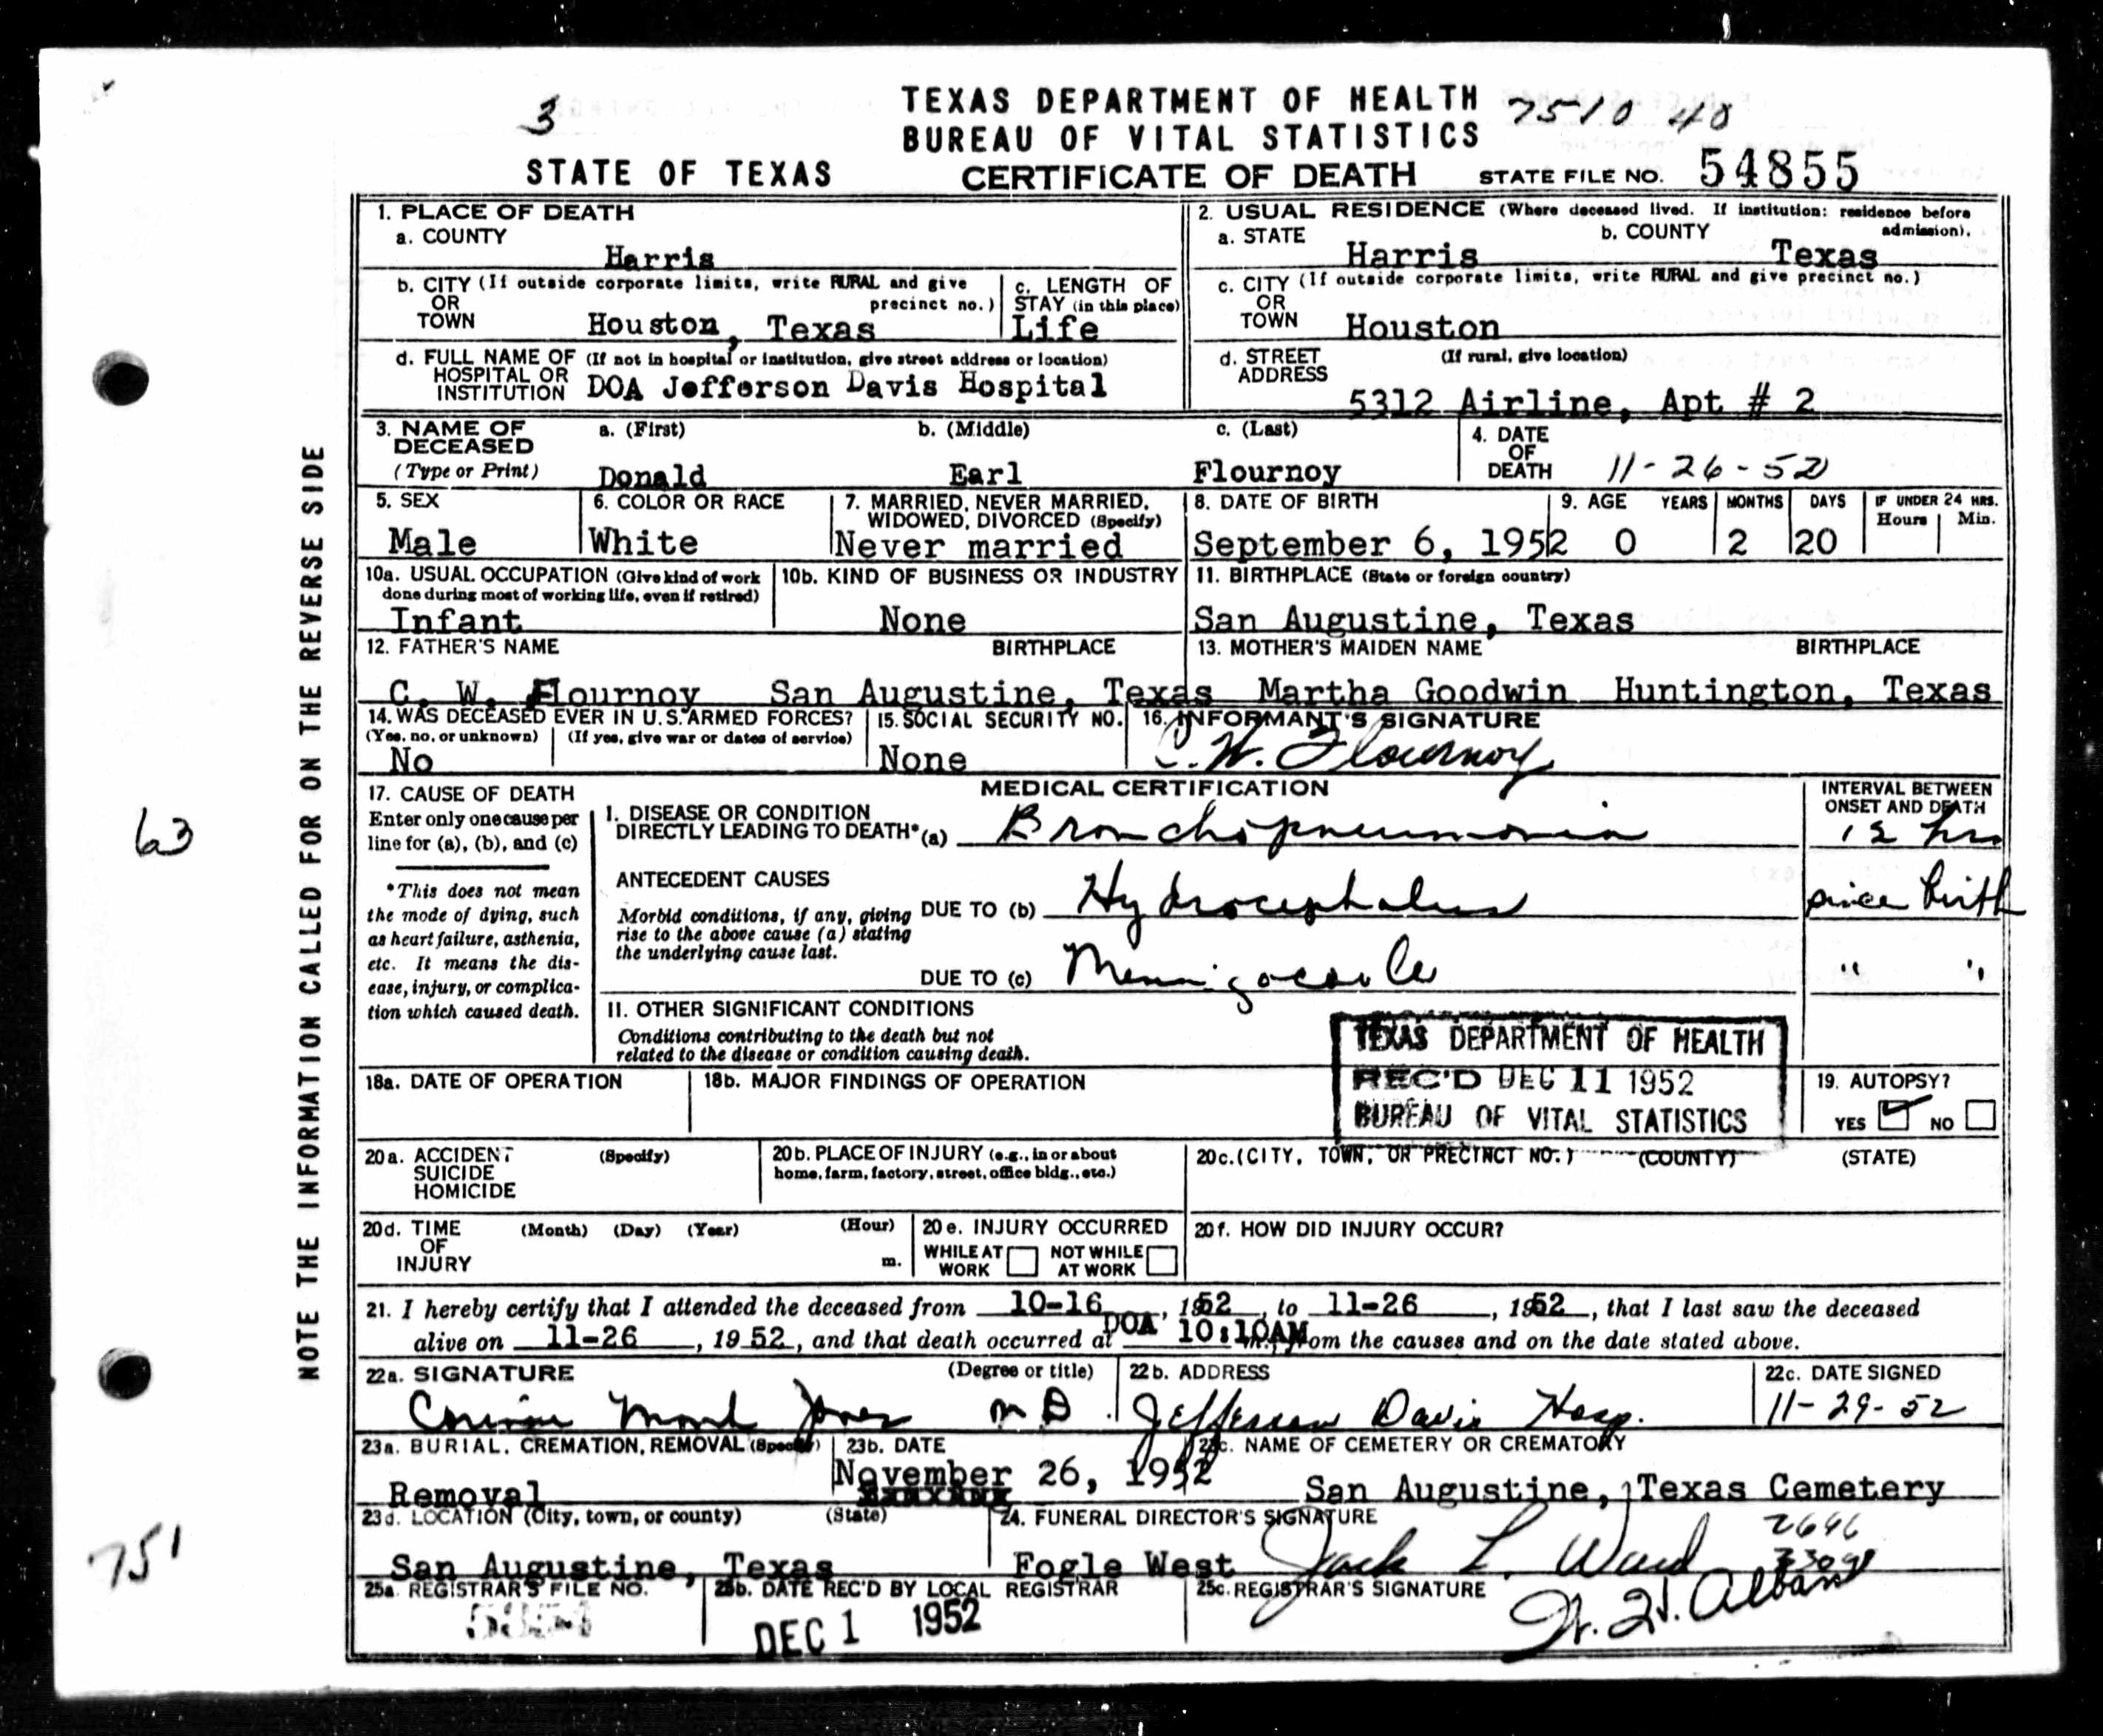 3
TEXAS DEPARTMENT OF HEALTH 7510 40
BUREAU OF VITAL STATISTICS
STATE OF TEXAS CERTIFICATE OF DEATH STATE FILE NO. 54855
NOTE THE INFORMATION CALLED FOR ON THE REVERSE SIDE
63
751
1. PLACE OF DEATH
a. COUNTY
Harris
2. USUAL RESIDENCE (Where deceased lived. If institution: residence before admission).
a. STATE b. COUNTY
Harris Texas
b. CITY (If outside corporate limits, write RURAL and give precinct no.)
OR
TOWN Houston, Texas
c. LENGTH OF
STAY (in this place)
Life
c. CITY (If outside corporate limits, write RURAL and give precinct no.)
OR
TOWN Houston
d. FULL NAME OF (If not in hospital or institution, give street address or location)
HOSPITAL OR
INSTITUTION DOA Jefferson Davis Hospital
d. STREET (If rural, give location)
ADDRESS
5312 Airline, Apt # 2
3. NAME OF a. (First) b. (Middle) c. (Last)
DECEASED
(Type or Print) Donald Earl Flournoy
4. DATE
OF
DEATH 11-26-52
5. SEX
Male
6. COLOR OR RACE
White
7. MARRIED, NEVER MARRIED,
WIDOWED, DIVORCED (Specify)
Never married
8. DATE OF BIRTH
September 6, 1952
9. AGE YEARS MONTHS DAYS IF UNDER 24 HRS.
Hours Min.
0 2 20
10a. USUAL OCCUPATION (Give kind of work
done during most of working life, even if retired)
Infant
10b. KIND OF BUSINESS OR INDUSTRY
None
11. BIRTHPLACE (State or foreign country)
San Augustine, Texas
12. FATHER'S NAME BIRTHPLACE
C. W. Flournoy San Augustine, Texas
13. MOTHER'S MAIDEN NAME BIRTHPLACE
Martha Goodwin Huntington, Texas
14. WAS DECEASED EVER IN U.S. ARMED FORCES?
(Yes, no, or unknown) (If yes, give war or dates of service)
No
15. SOCIAL SECURITY NO.
None
16. INFORMANT'S SIGNATURE
C. W. Flournoy
17. CAUSE OF DEATH
Enter only one cause per
line for (a), (b), and (c)
*This does not mean
the mode of dying, such
as heart failure, asthenia,
etc. It means the dis-
ease, injury, or complica-
tion which caused death.
MEDICAL CERTIFICATION
I. DISEASE OR CONDITION
DIRECTLY LEADING TO DEATH* (a) Bronchopneumonia
ANTECEDENT CAUSES
Morbid conditions, if any, giving
rise to the above cause (a) stating
the underlying cause last.
DUE TO (b) Hydrocephalus
DUE TO (c) Meningocoele
II. OTHER SIGNIFICANT CONDITIONS
Conditions contributing to the death but not
related to the disease or condition causing death.
INTERVAL BETWEEN
ONSET AND DEATH
12 hrs
since birth
" "
TEXAS DEPARTMENT OF HEALTH
REC'D DEC 11 1952
BUREAU OF VITAL STATISTICS
18a. DATE OF OPERATION
18b. MAJOR FINDINGS OF OPERATION
19. AUTOPSY?
YES NO
20a. ACCIDENT (Specify)
SUICIDE
HOMICIDE
20b. PLACE OF INJURY (e.g., in or about
home, farm, factory, street, office bldg., etc.)
20c. (CITY, TOWN, OR PRECINCT NO.) (COUNTY) (STATE)
20d. TIME (Month) (Day) (Year) (Hour)
OF
INJURY m.
20e. INJURY OCCURRED
WHILE AT WORK NOT WHILE AT WORK
20f. HOW DID INJURY OCCUR?
21. I hereby certify that I attended the deceased from 10-16, 1952, to 11-26, 1952, that I last saw the deceased
alive on 11-26, 1952, and that death occurred at DOA 10:10AM m., from the causes and on the date stated above.
22a. SIGNATURE (Degree or title)
Jones MD
22b. ADDRESS
Jefferson Davis Hosp.
22c. DATE SIGNED
11-29-52
23a. BURIAL, CREMATION, REMOVAL (Specify)
Removal
23b. DATE
November 26, 1952
23c. NAME OF CEMETERY OR CREMATORY
San Augustine, Texas Cemetery
23d. LOCATION (City, town, or county) (State)
San Augustine, Texas
24. FUNERAL DIRECTOR'S SIGNATURE
Fogle West Jack L. Ward
25a. REGISTRAR'S FILE NO.
25b. DATE REC'D BY LOCAL REGISTRAR
DEC 1 1952
25c. REGISTRAR'S SIGNATURE